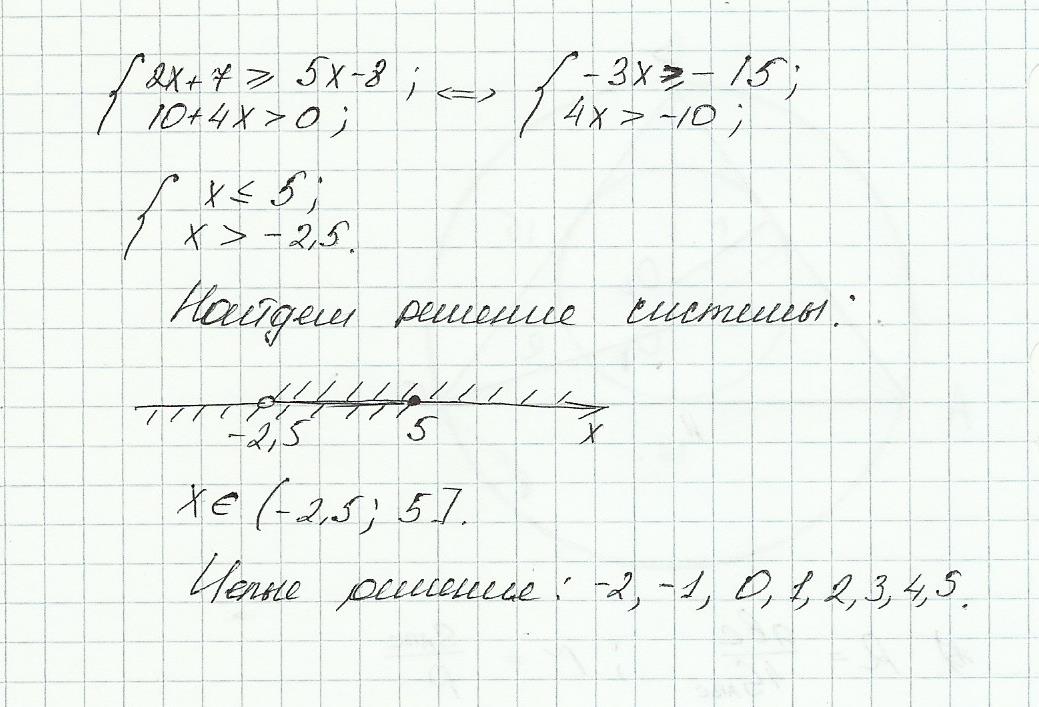 { 2x+7 ⩾ 5x-8 ; <=> { -3x ⩾ -15;
10+4x > 0; 4x > -10;
{ x ≤ 5;
x > -2,5.
Найдем решение системы:
-2,5 5 x
x ∈ (-2,5; 5].
Целые решение: -2, -1, 0, 1, 2, 3, 4, 5.